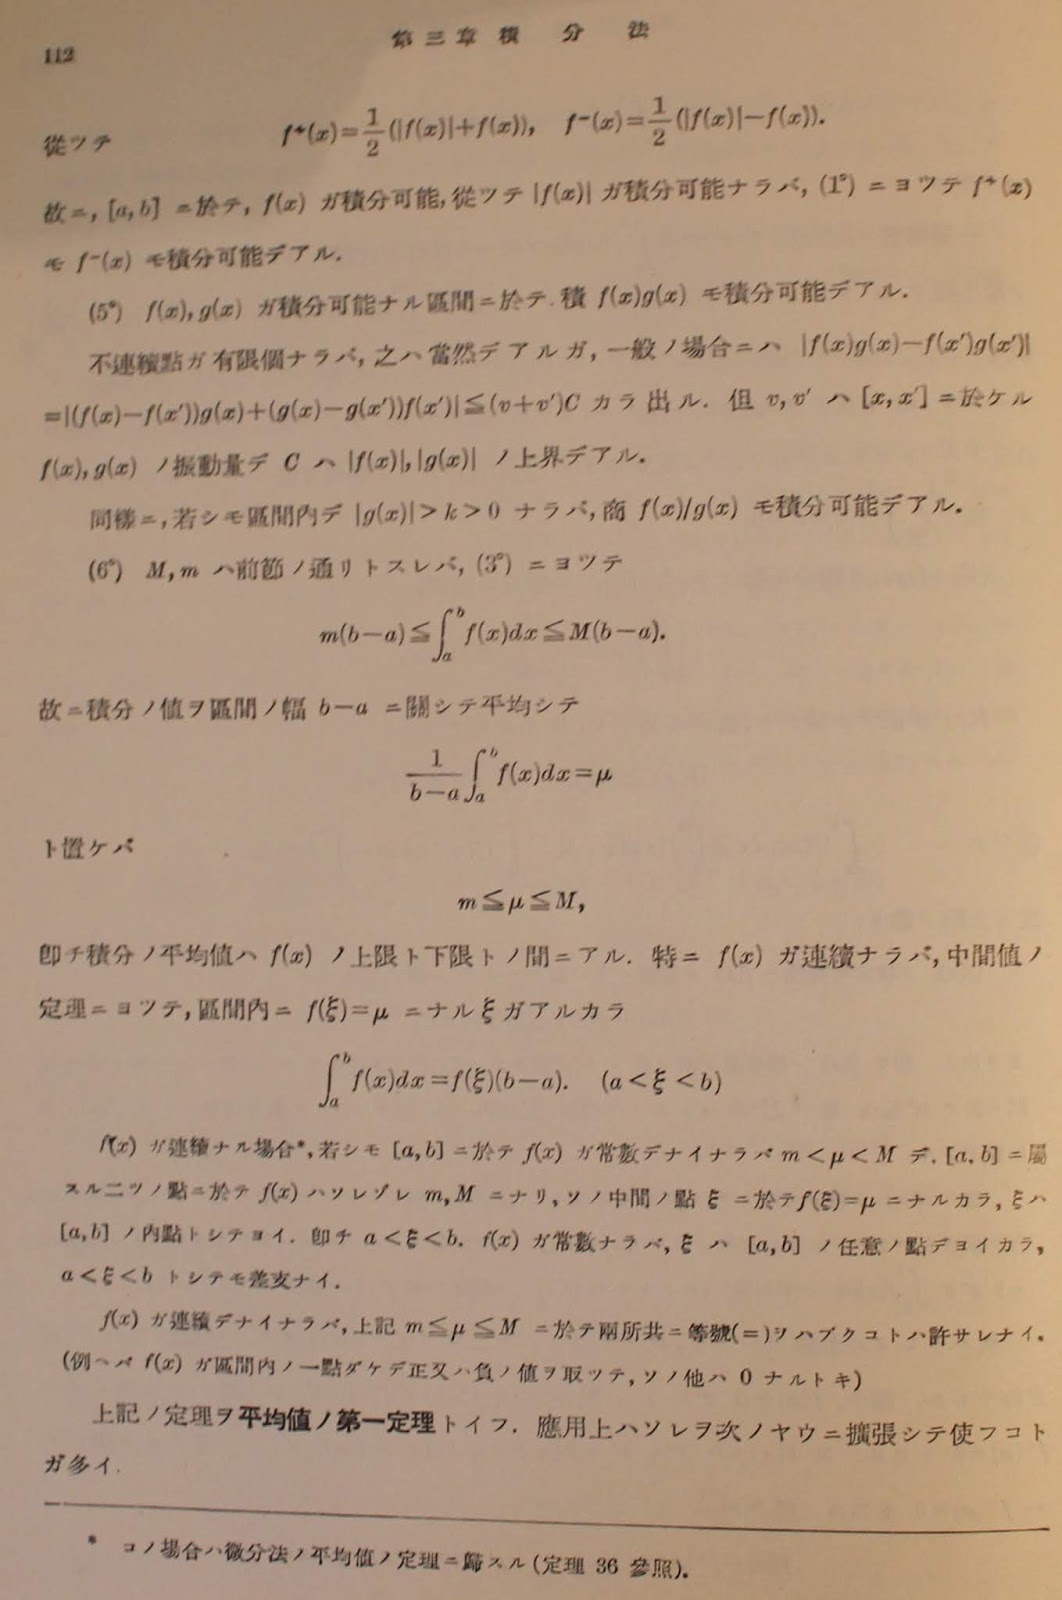 112
第三章 積分法
從ツテ f⁺(x)=1/2(|f(x)|+f(x)), f⁻(x)=1/2(|f(x)|−f(x)).
故ニ, [a, b] ニ於テ, f(x) ガ積分可能, 從ツテ |f(x)| ガ積分可能ナラバ, (1°) ニヨツテ f⁺(x)
モ f⁻(x) モ積分可能デアル.
(5°) f(x), g(x) ガ積分可能ナル區間ニ於テ 積 f(x)g(x) モ積分可能デアル.
不連續點ガ有限個ナラバ, 之ハ當然デアルガ, 一般ノ場合ニハ |f(x)g(x)−f(x′)g(x′)|
=|(f(x)−f(x′))g(x)+(g(x)−g(x′))f(x′)|≦(v+v′)C カラ出ル. 但 v, v′ ハ [x, x′] ニ於ケル
f(x), g(x) ノ振動量デ C ハ |f(x)|, |g(x)| ノ上界デアル.
同樣ニ, 若シモ區間內デ |g(x)|>k>0 ナラバ, 商 f(x)/g(x) モ積分可能デアル.
(6°) M, m ハ前節ノ通リトスレバ, (3°) ニヨツテ
m(b−a)≦∫ₐᵇ f(x)dx≦M(b−a).
故ニ積分ノ値ヲ區間ノ幅 b−a ニ關シテ平均シテ
1/(b−a) ∫ₐᵇ f(x)dx=μ
ト置ケバ
m≦μ≦M,
卽チ積分ノ平均値ハ f(x) ノ上限ト下限トノ間ニアル. 特ニ f(x) ガ連續ナラバ, 中間値ノ
定理ニヨツテ, 區間內ニ f(ξ)=μ ニナル ξ ガアルカラ
∫ₐᵇ f(x)dx=f(ξ)(b−a). (a<ξ<b)
f(x) ガ連續ナル場合*, 若シモ [a, b] ニ於テ f(x) ガ常數デナイナラバ m<μ<M デ. [a, b] ニ屬
スル二ツノ點ニ於テ f(x) ハソレゾレ m, M ニナリ, ソノ中間ノ點 ξ ニ於テ f(ξ)=μ ニナルカラ, ξ ハ
[a, b] ノ內點トシテヨイ. 卽チ a<ξ<b. f(x) ガ常數ナラバ, ξ ハ [a, b] ノ任意ノ點デヨイカラ,
a<ξ<b トシテモ差支ナイ.
f(x) ガ連續デナイナラバ, 上記 m≦μ≦M ニ於テ兩所共ニ等號(=)ヲハブクコトハ許サレナイ.
(例ヘバ f(x) ガ區間內ノ一點ダケデ正又ハ負ノ値ヲ取ツテ, ソノ他ハ 0 ナルトキ)
上記ノ定理ヲ平均値ノ第一定理トイフ. 應用上ハソレヲ次ノヤウニ擴張シテ使フコト
ガ多イ.
* コノ場合ハ微分法ノ平均値ノ定理ニ歸スル (定理 36 參照).